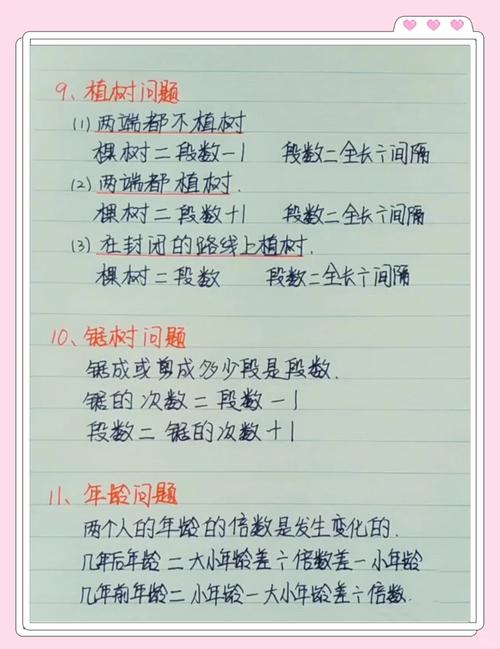 9、植树问题
(1) 两端都不植树
棵树=段数-1 段数=全长÷间隔
(2) 两端都植树.
棵树=段数+1 段数=全长÷间隔
(3) 在封闭的路线上植树.
棵树=段数 段数=全长÷间隔
10、锯树问题
锯成或剪成多少段是段数.
锯的次数=段数-1
段数=锯的次数+1
11、年龄问题
两个人的年龄的倍数是发生变化的.
几年后年龄=大小年龄差÷倍数差-小年龄
几年前年龄=小年龄-大小年龄差÷倍数.